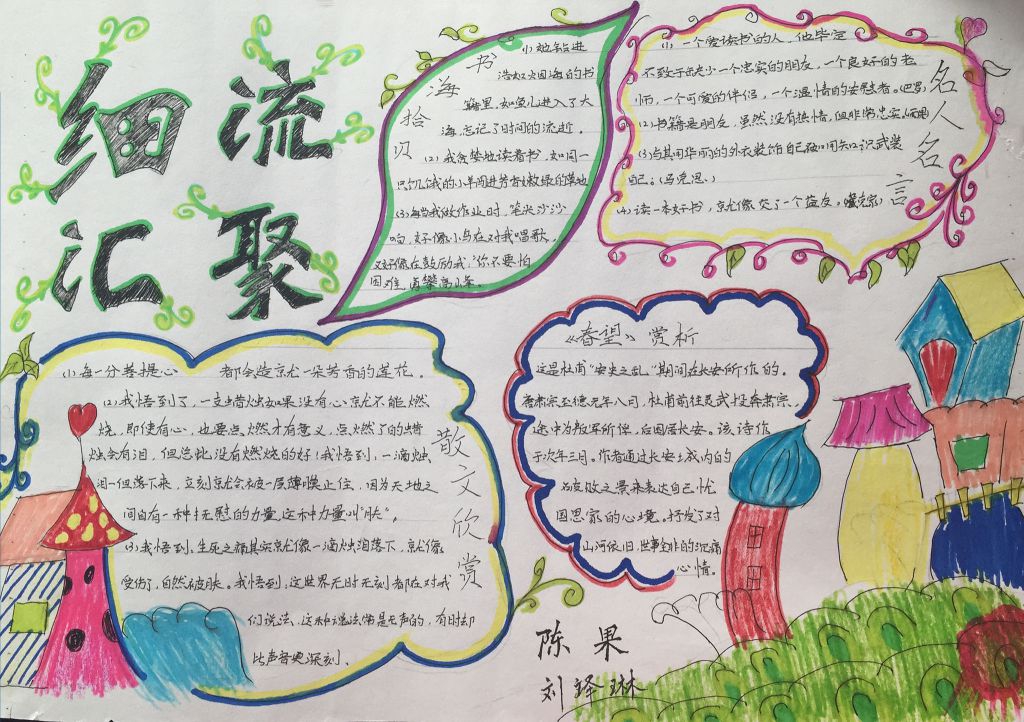 细流
汇聚
书海拾贝
(1)她钻进
浩如烟海的书
籍里,如鱼儿进入了大
海,忘记了时间的流逝。
(2)我贪婪地读着书,如同一
只饥饿的小羊闯进芳香嫩绿的草地
(3)每当我做作业时,笔尖沙沙
响,好像小鸟在对我唱歌。
又好像在鼓励我:你不要怕
困难,勇攀高峰。
名人名言
(1)一个爱读书的人,他毕定
不致于缺少一个忠实的朋友,一个良好的老
师,一个可爱的伴侣,一个温情的安慰者。(巴罗)
(2)书籍是朋友,虽然没有热情,但非常忠实(雨果)
(3)与其用华丽的外衣装饰自己破口用知识武装
自己。(马克思)
(4)读一本好书,就像交了一个益友。
散文欣赏
(1)每一分菩提心 都会是京尤一朵芳香的莲花。
(2)我悟到了,一支蜡烛如果没有心就不能燃
烧,即使有心,也要点燃才有意义,点燃了的蜡
烛会有泪,但总比没有燃烧的好!我悟到,一滴烛
泪一但落下来,立刻就会被一层薄膜止住,因为天地之
间自有一种抚慰的力量,这种力量叫“肤”。
(3)我悟到,生死之痛其实就像一滴烛泪落下,就像
受伤了,自然被肤。我悟到,这世界无时无刻都在对我
们说法,这种说法常是无声的,有时却
比声音更深刻、
《春望》赏析
这是杜甫“安史之乱”期间在长安所作的。
唐肃宗至德元年八月,杜甫前往灵武投奔肃宗,
途中为叛军所俘,后困居长安。该诗作
于次年三月。作者通过长安城内的
破败之景来表达自己忧
国思家的心境。抒发了对
山河依旧,世事全非的沉痛
心情。
陈果
刘铎琳